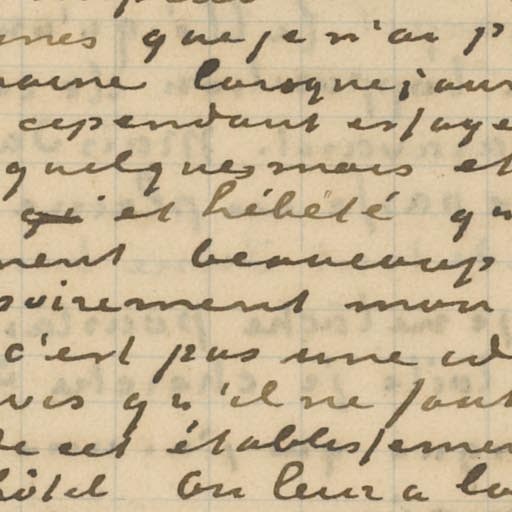 nes que je n'ai p
lorsque j'aur
cependant essaye
quelques mois et
et hébété qu
ment beaucoup
soirement mon
c'est pas une id
vis qu'il ne faut
de cet établissemen
hôtel On leur a la